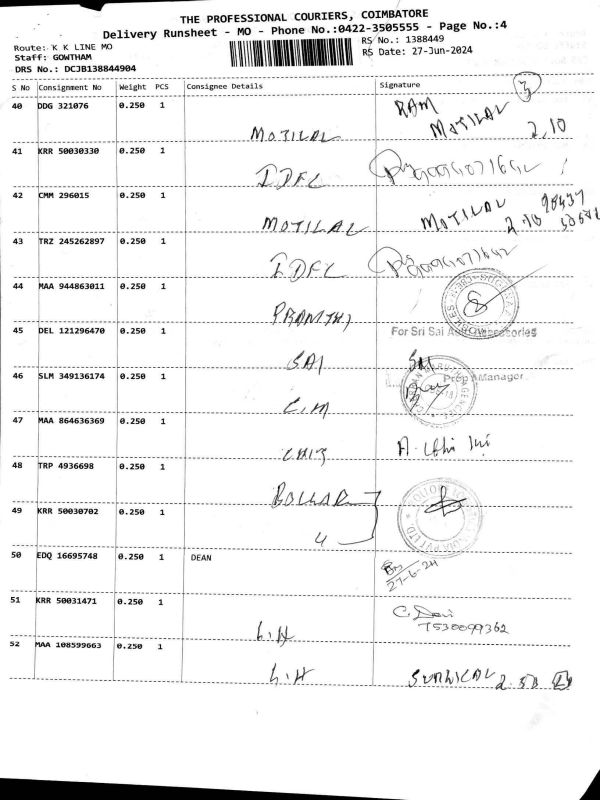 THE PROFESSIONAL COURIERS, COIMBATORE
Delivery Runsheet - MO - Phone No.:0422-3505555 - Page No.:4
Route: K K LINE MO
Staff: GOWTHAM
DRS No.: DCJB138844904
RS No.: 1388449
RS Date: 27-Jun-2024
S No Consignment No Weight PCS Consignee Details Signature
3
40 DDG 321076 0.250 1
RAM
MOTILAL MOTILAL 2.10
41 KRR 50030330 0.250 1
IDFC
42 CMM 296015 0.250 1
MOTILAL MOTILAL 2.10
43 TRZ 245262897 0.250 1
IDFC
44 MAA 944863011 0.250 1
PRAMTHI
45 DEL 121296470 0.250 1 For Sri Sai
SAI SAI
46 SLM 349136174 0.250 1 Manager
C.M
47 MAA 864636369 0.250 1
48 TRP 4936698 0.250 1
49 KRR 50030702 0.250 1
4
50 EDQ 16695748 0.250 1 DEAN
27-6-24
51 KRR 50031471 0.250 1
C. Devi
7530099362
L.H
52 MAA 108599663 0.250 1
L.H SURGICAL 2.50